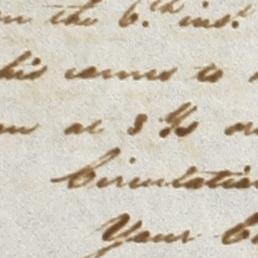 on the 6.th inst.
his comes to
at 3 %
Circulation
Your